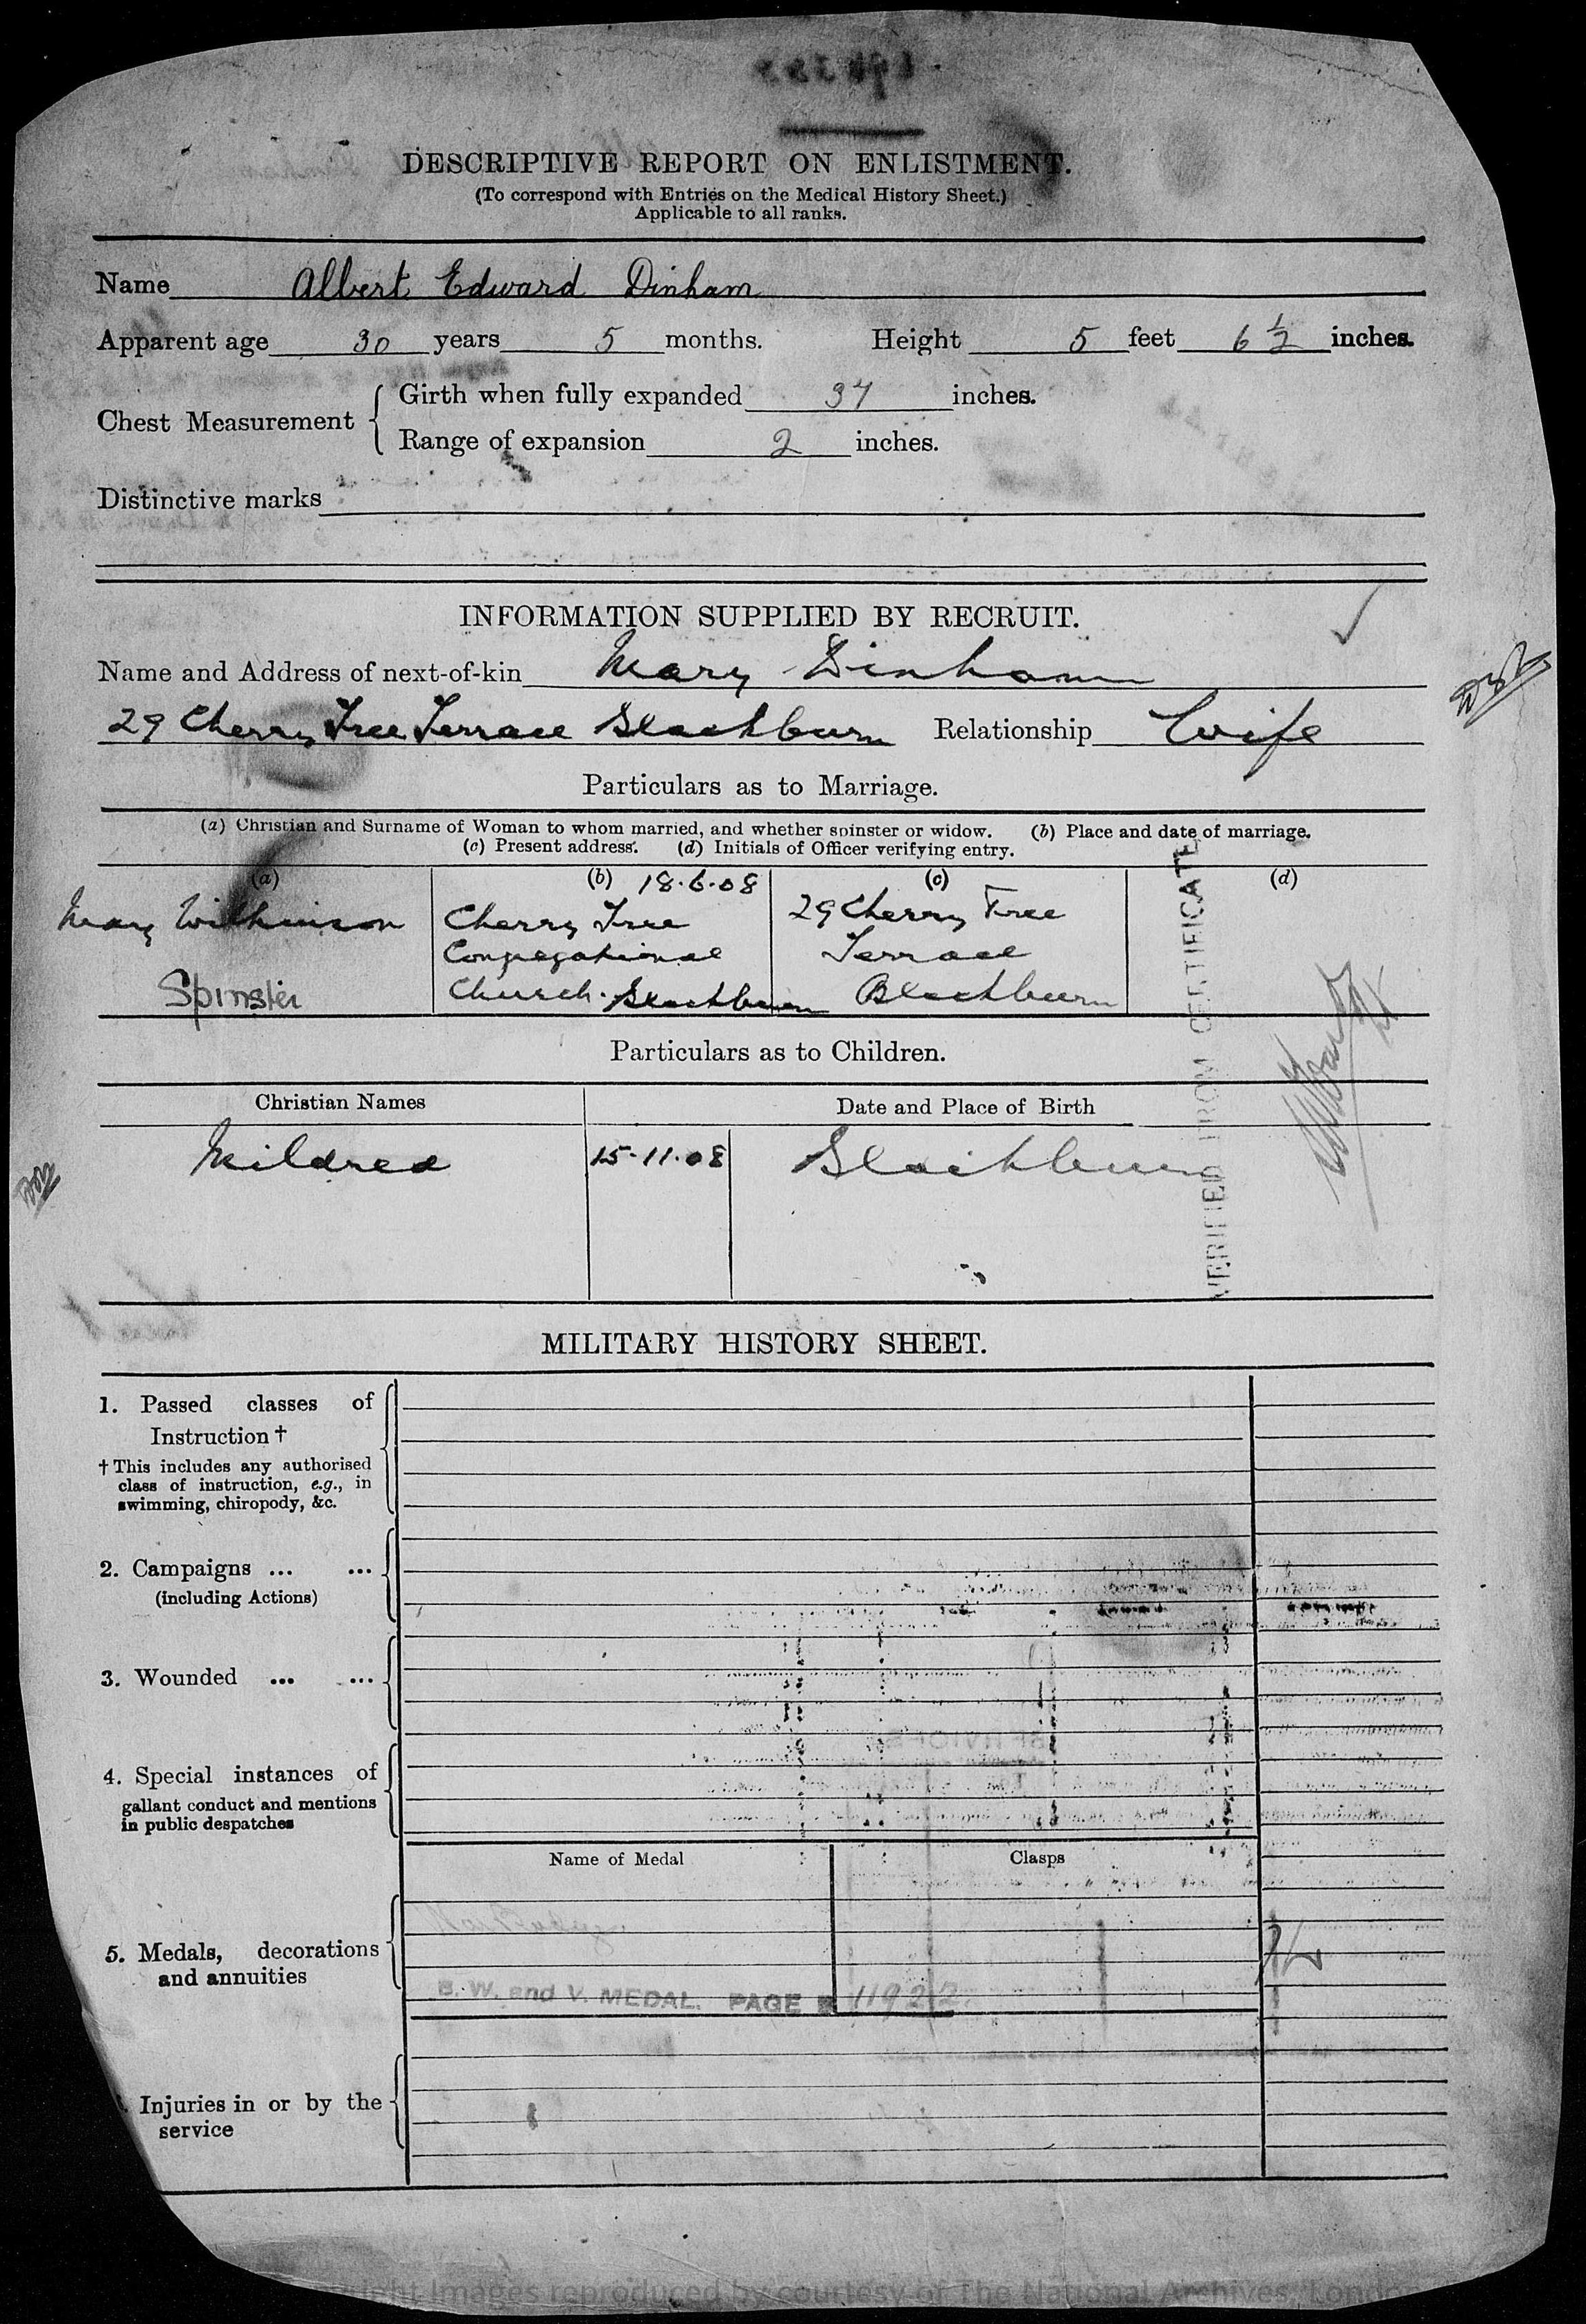 DESCRIPTIVE REPORT ON ENLISTMENT.
(To correspond with Entries on the Medical History Sheet.)
Applicable to all ranks.
Name Albert Edward Dinham
Apparent age 30 years 5 months. Height 5 feet 6 1/2 inches.
Chest Measurement
Girth when fully expanded 37 inches.
Range of expansion 2 inches.
Distinctive marks
INFORMATION SUPPLIED BY RECRUIT.
Name and Address of next-of-kin Mary Dinham
29 Cherry Tree Terrace Blackburn Relationship Wife
Particulars as to Marriage.
(a) Christian and Surname of Woman to whom married, and whether spinster or widow. (b) Place and date of marriage.
(c) Present address. (d) Initials of Officer verifying entry.
(a) (b) 18.6.08 (c) (d)
Mary Wilkinson Cherry Tree 29 Cherry Tree
Congregational Terrace
Spinster Church. Blackburn Blackburn
VERIFIED FROM CERTIFICATE
Particulars as to Children.
Christian Names Date and Place of Birth
Mildred 15-11-08 Blackburn
MILITARY HISTORY SHEET.
1. Passed classes of
Instruction †
† This includes any authorised
class of instruction, e.g., in
swimming, chiropody, &c.
2. Campaigns ... ...
(including Actions)
3. Wounded ... ...
4. Special instances of
gallant conduct and mentions
in public despatches
Name of Medal Clasps
5. Medals, decorations
and annuities
B. W. and V. MEDAL. PAGE 11922
Injuries in or by the
service
Images reproduced by courtesy of The National Archives, London